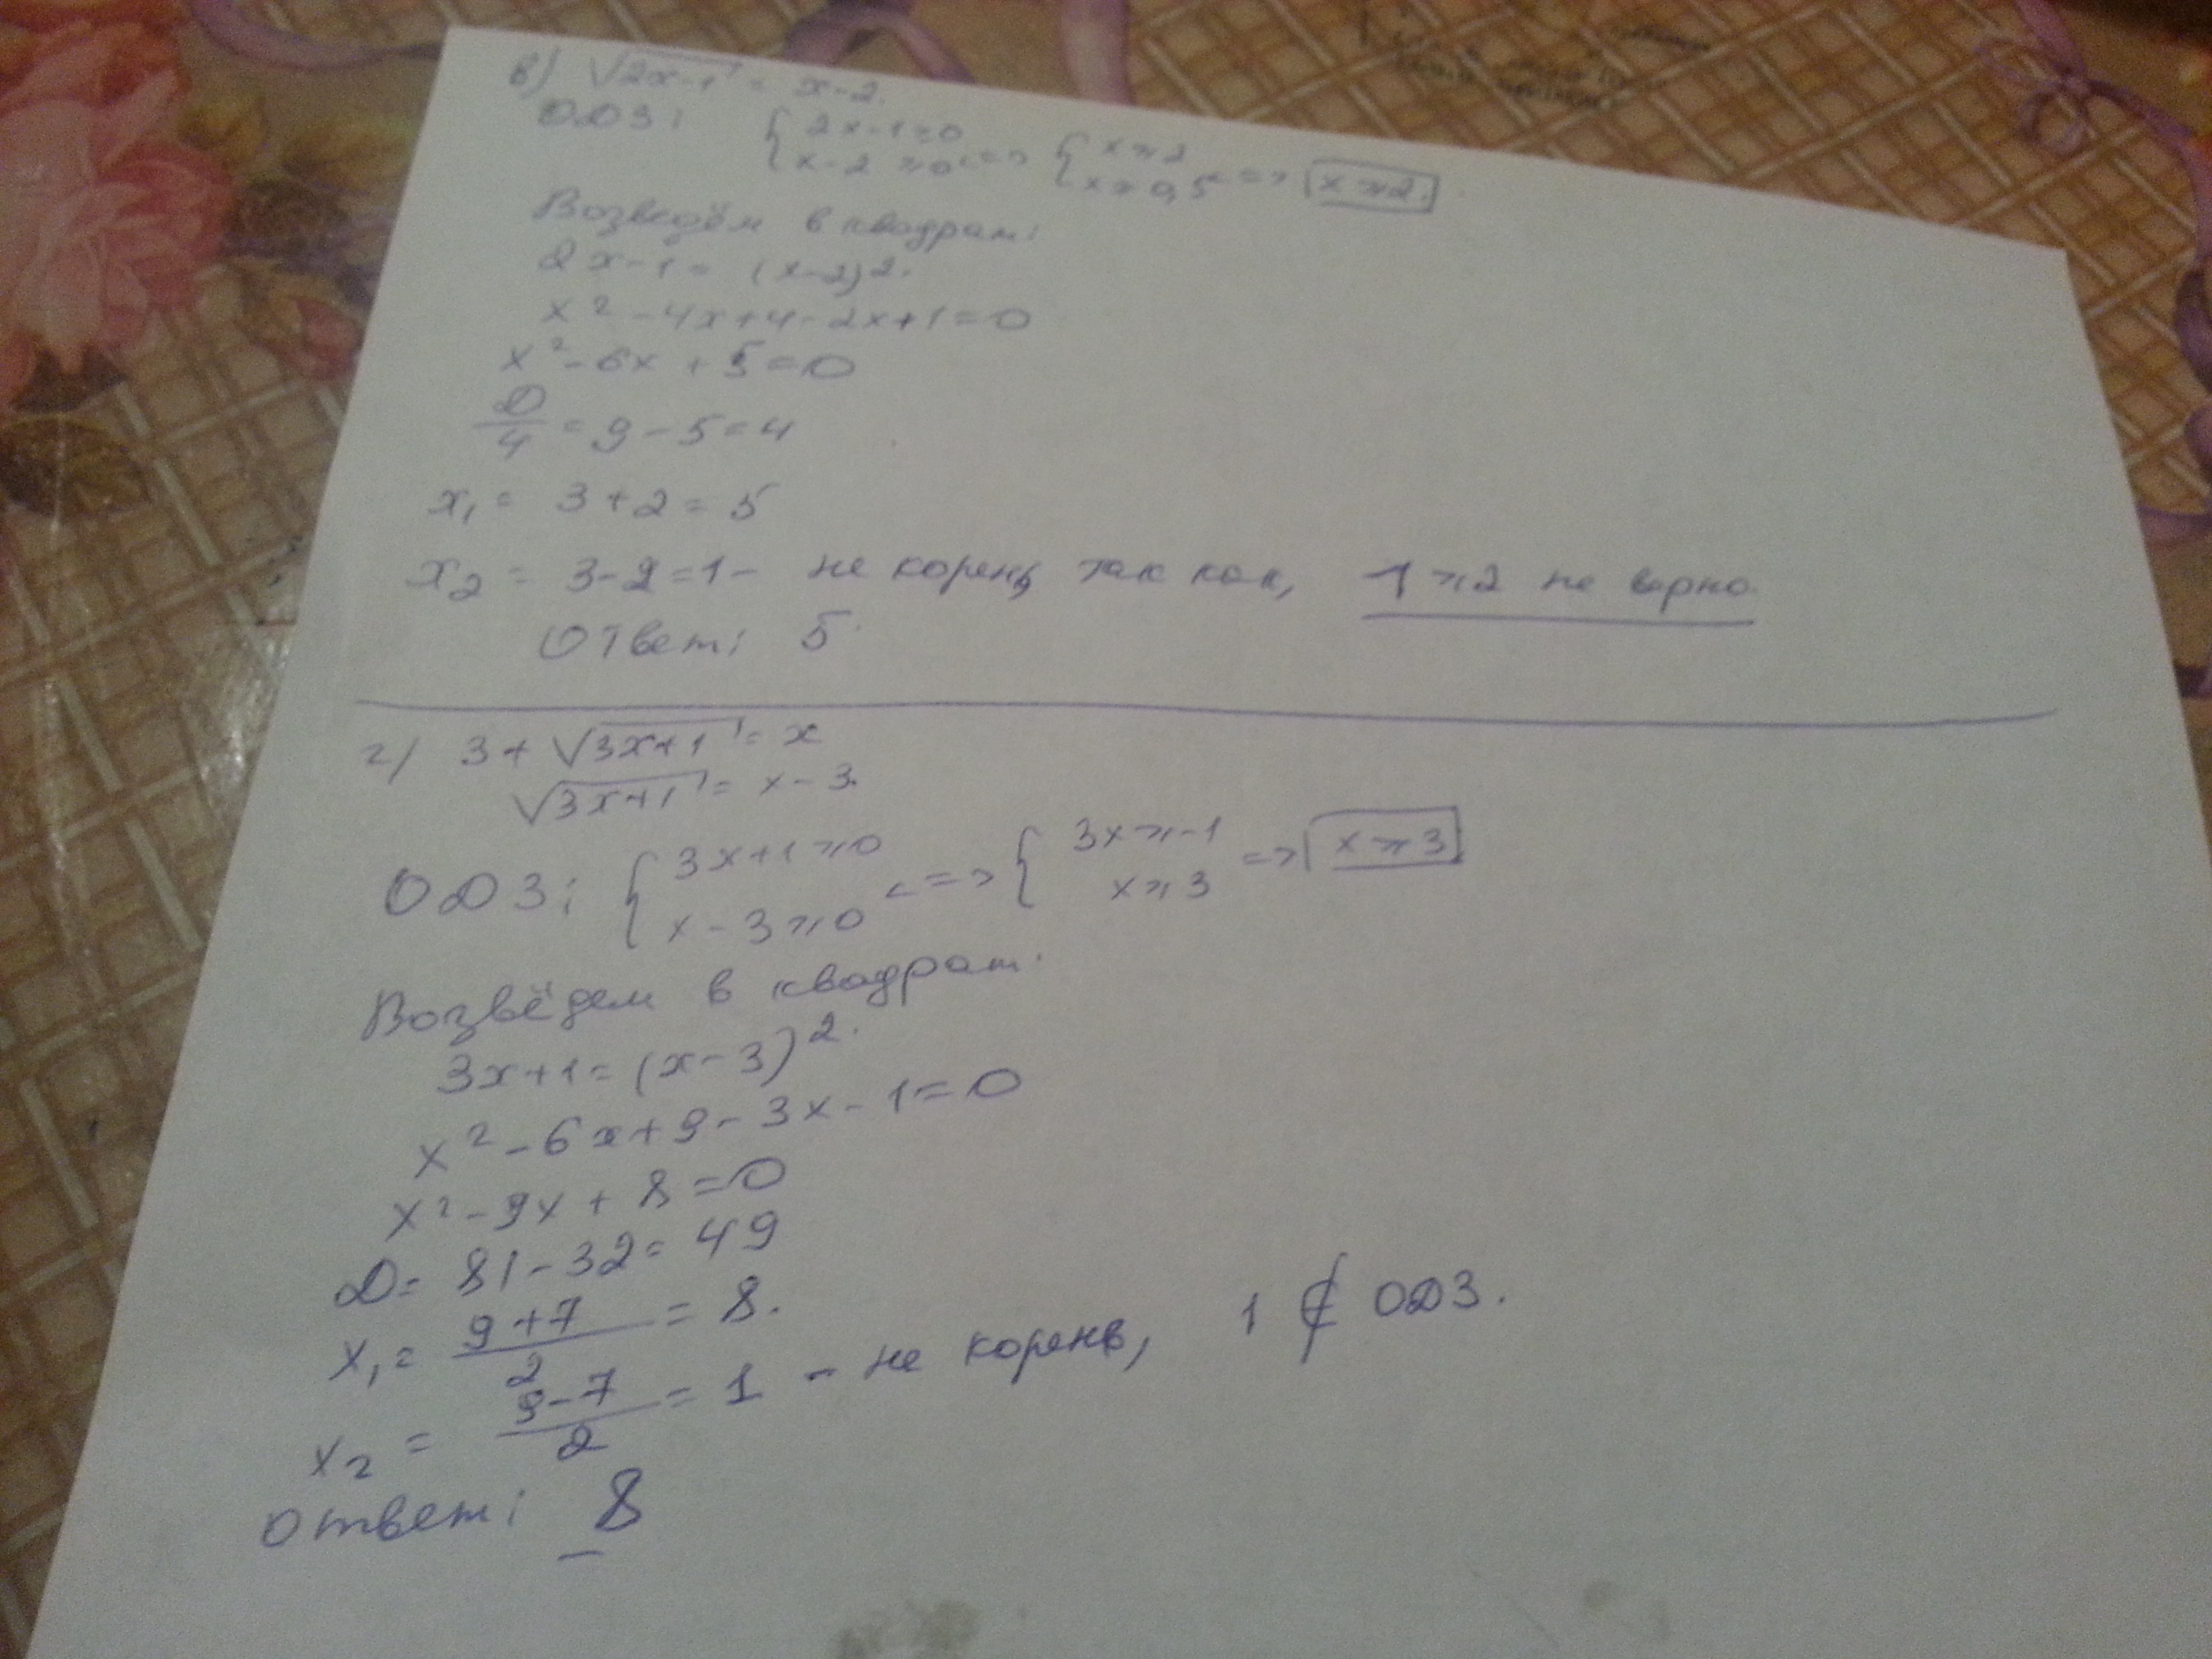 в) √2x-1 = x-2.
ОДЗ: { 2x-1≥0
x-2 ≥0 <=> { x≥2
x≥0,5 <=> x≥2.
Возведём в квадрат:
2x-1 = (x-2)².
x² -4x+4-2x+1=0
x²-6x+5=0
D/4 = 9-5=4
x₁ = 3+2=5
x₂ = 3-2=1- не корень, так как, 1≥2 не верно.
Ответ: 5.
г) 3+√3x+1 = x
√3x+1 = x-3.
ОДЗ: { 3x+1≥0
x-3≥0 <=> { 3x≥-1
x≥3 => x≥3
Возведём в квадрат.
3x+1=(x-3)².
x²-6x+9-3x-1=0
x²-9x+8=0
D= 81-32=49
x₁= 9+7/2 = 8.
x₂ = 9-7/2 = 1 - не корень, 1 ∉ ОДЗ.
Ответ: 8